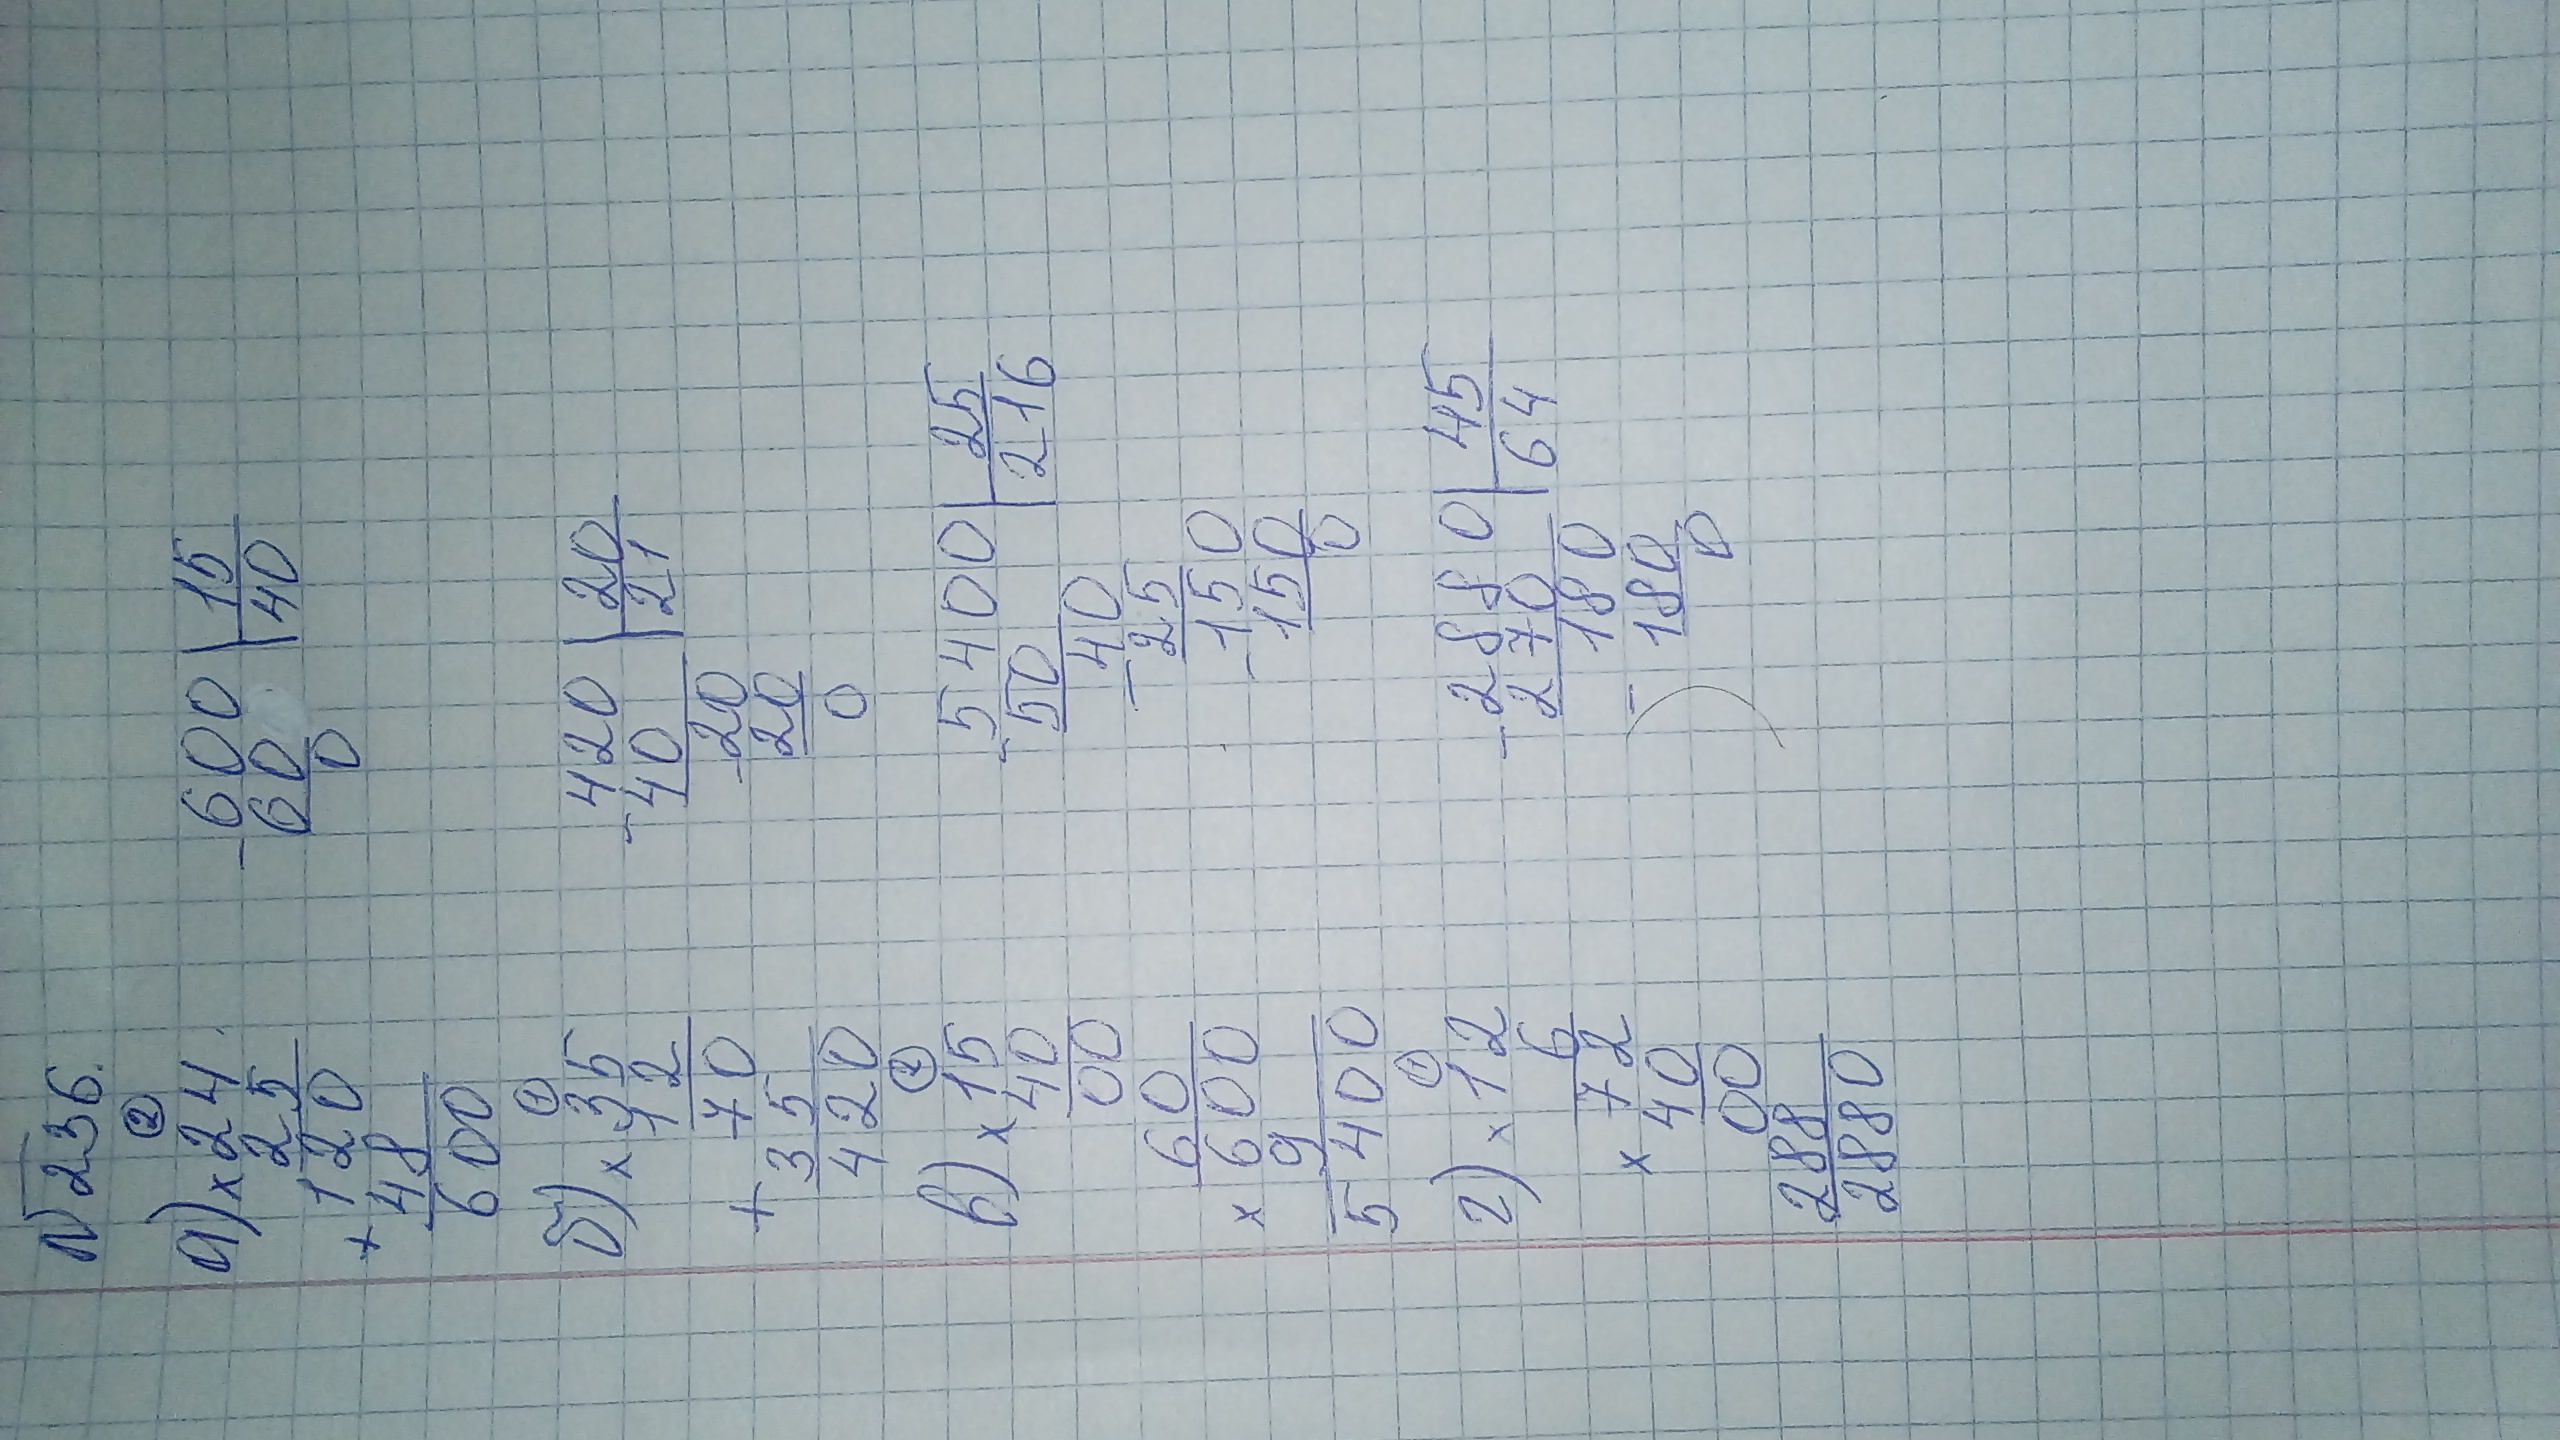 № 236.
а) × 24
25
+ 120
48
600
- 600 | 15
60 | 40
0
б) × 35
12
70
+ 35
420
- 420 | 20
40 | 21
- 20
20
0
в) × 15
40
00
60
× 600
9
5400
- 5400 | 25
50 | 216
40
- 25
- 150
150
0
г) × 12
6
× 72
40
00
288
2880
- 2880 | 45
270 | 64
180
- 180
0